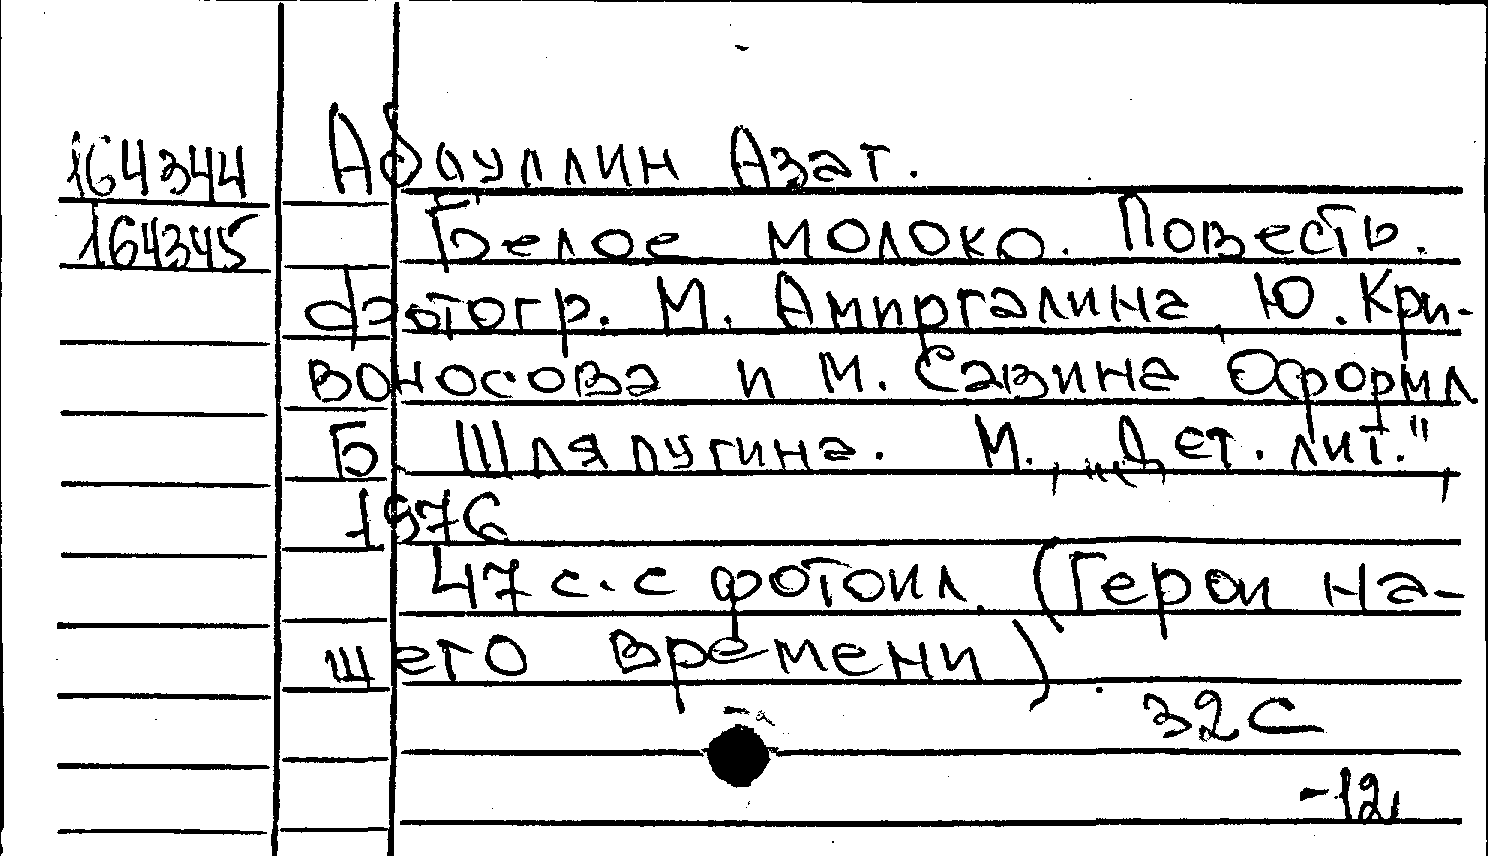 164344 Абдуллин Азат.
164345 Белое молоко. Повесть.
фотогр. М. Амиргалина, Ю. Кри-
воносова и М. Сазина Оформл
Б Шляпугина. М., "Дет. лит.",
1976
47 с. с фотоил. (Герои на-
шего времени).
32с
-12